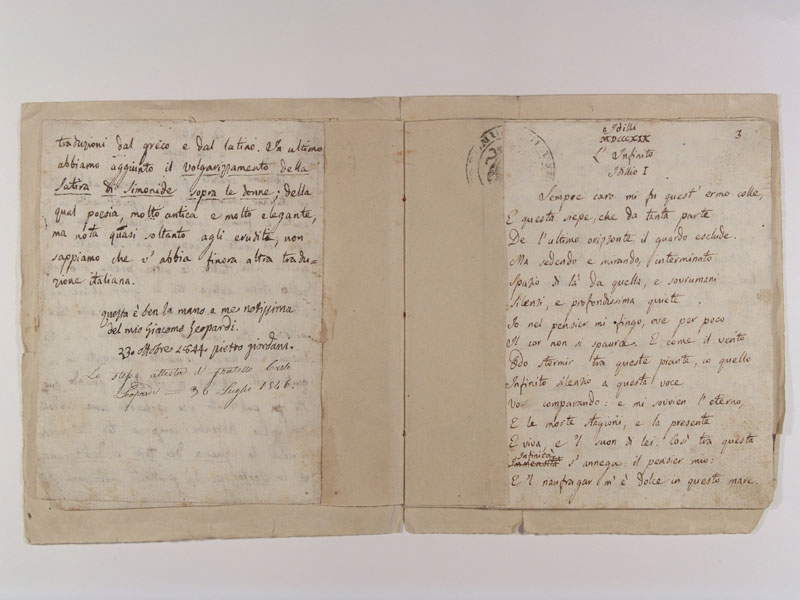 traduzioni dal greco e dal latino. In ultimo
abbiamo aggiunto il volgarizzamento della
Satira di Simonide sopra le donne; della
qual poesia, molto antica e molto elegante,
ma nota quasi soltanto agli eruditi, non
sappiamo che v'abbia finora altra tradu=
zione italiana.
questa è ben la mano a me notissima
del mio Giacomo Leopardi.
23. ottobre 1844. pietro giordani.
Lo stesso attesta il fratello Carlo
Leopardi = 26 Luglio 1846
3
Idilli
MDCCCXIX
L'Infinito
Idillio I
Sempre caro mi fu quest'ermo colle,
E questa siepe, che da tanta parte
De l'ultimo orizzonte il guardo esclude.
Ma sedendo e mirando, interminato
Spazio di là da quella, e sovrumani
Silenzi, e profondissima quiete
Io nel pensier mi fingo, ove per poco
Il cor non si spaura. E come il vento
Odo stormir tra queste piante, io quello
Infinito silenzio a questa voce
Vo comparando: e mi sovvien l'eterno,
E le morte stagioni, e la presente
E viva, e 'l suon di lei. Così tra questa
Infinità
Immensità s'annega il pensier mio:
E 'l naufragar m'è dolce in questo mare.